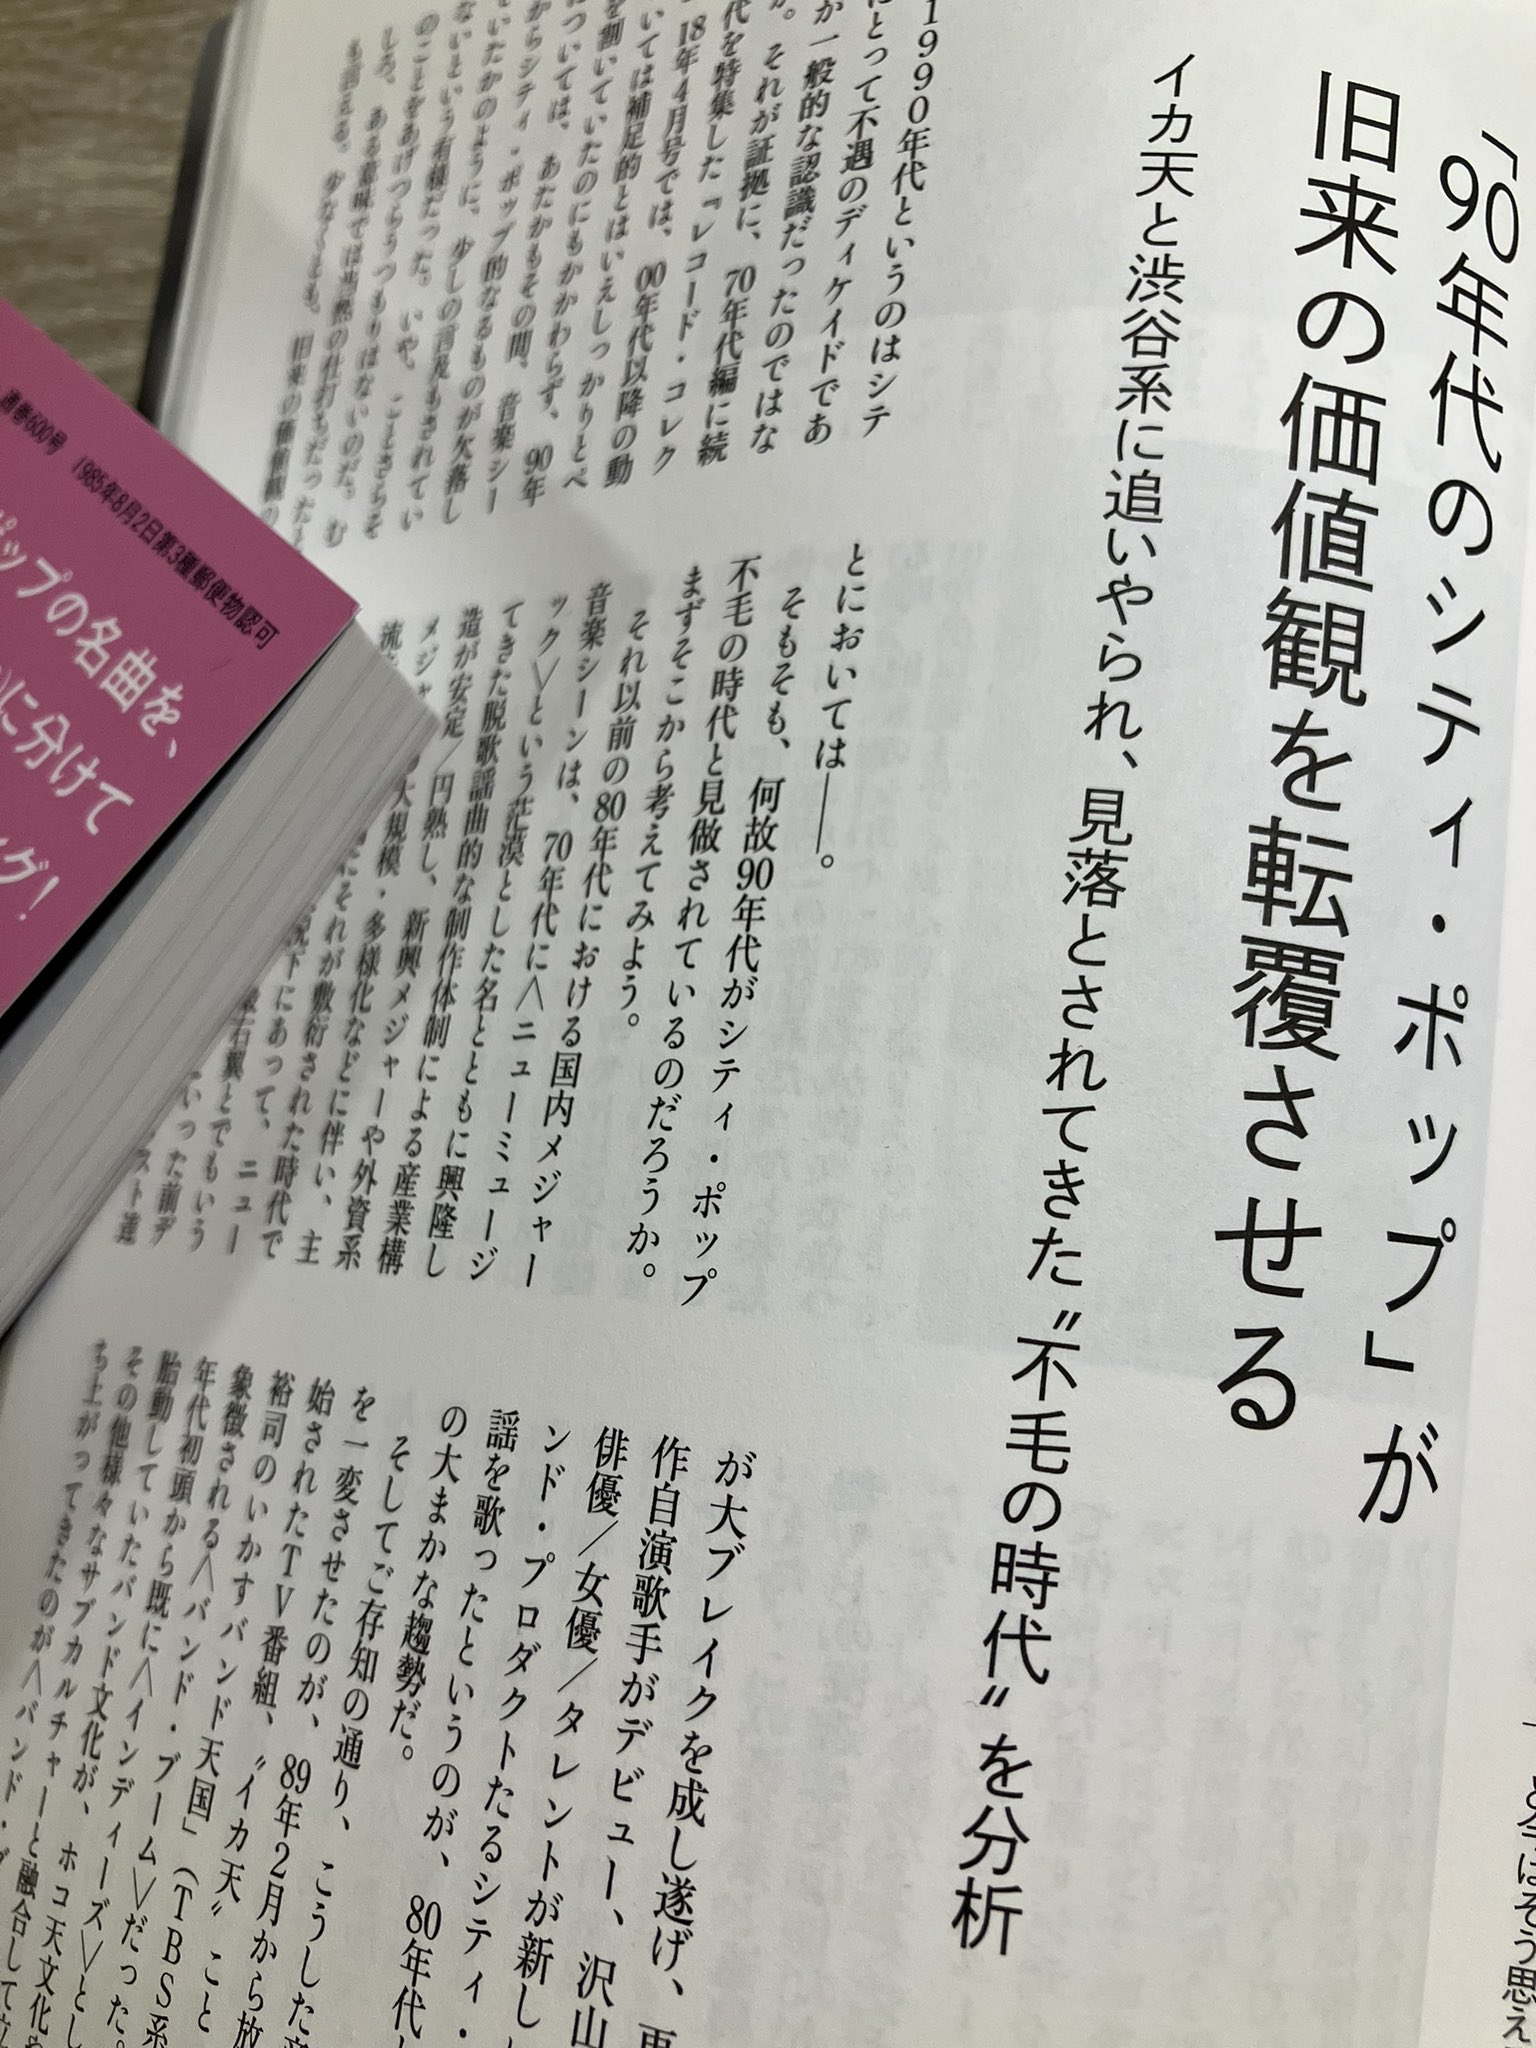 「90年代のシティ・ポップ」が
旧来の価値観を転覆させる
イカ天と渋谷系に追いやられ、見落とされてきた〝不毛の時代〟を分析
1990年代というのはシテ
にとって不遇のディケイドであ
が一般的な認識だったのではな
か。それが証拠に、70年代編に続
代を特集した『レコード・コレク
18年4月号では、00年代以降の動
いては補足的とはいえしっかりとペ
を割いていたのにもかかわらず、90年
については、あたかもその間、音楽シー
からシティ・ポップ的なるものが欠落し
いたかのように、少しの言及もされてい
ないという有様だった。いや、ことさらそ
のことをあげつらうつもりはないのだ。む
しろ、ある意味では当然の仕打ちだったと
も言える。少なくとも、旧来の価値観の
とにおいては——。
そもそも、何故90年代がシティ・ポップ
不毛の時代と見做されているのだろうか。
まずそこから考えてみよう。
それ以前の80年代における国内メジャー
音楽シーンは、70年代に〈ニューミュージ
ック〉という茫漠とした名とともに興隆し
てきた脱歌謡曲的な制作体制による産業構
造が安定／円熟し、新興メジャーや外資系
メジャ
大規模・多様化などに伴い、主
流
にそれが敷衍された時代で
況下にあって、ニュー
最右翼とでもいう
いった前デ
スト達
が大ブレイクを成し遂げ、再
作自演歌手がデビュー、沢山
俳優／女優／タレントが新し
ンド・プロダクトたるシティ・
謡を歌ったというのが、80年代
の大まかな趨勢だ。
そしてご存知の通り、こうした
を一変させたのが、89年2月から放
始されたTV番組、〝イカ天〟こと
裕司のいかすバンド天国」（TBS系
象徴される〈バンド・ブーム〉だった。
年代初頭から既に〈インディーズ〉とし
胎動していたバンド文化が、ホコ天文化
その他様々なサブカルチャーと融合して
ち上がってきたのが〈バンド・ブ
通巻600号 1985年8月2日第3種郵便物認可
ポップの名曲を、
に分けて
グ！